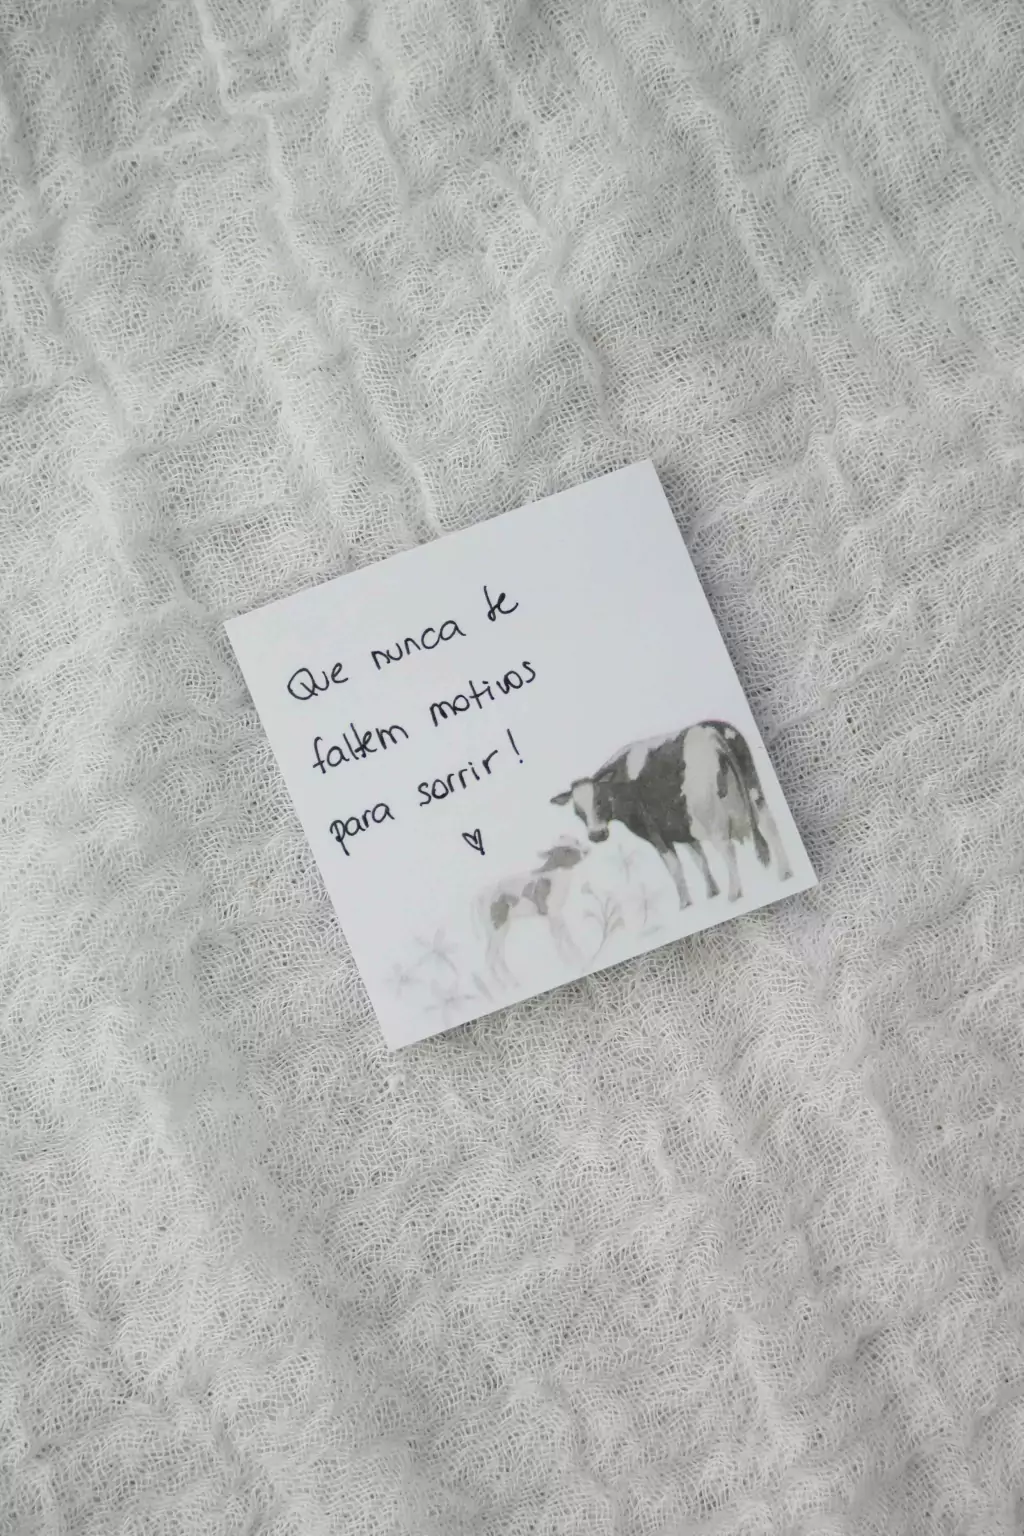 Que nunca te
faltem motivos
para sorrir!